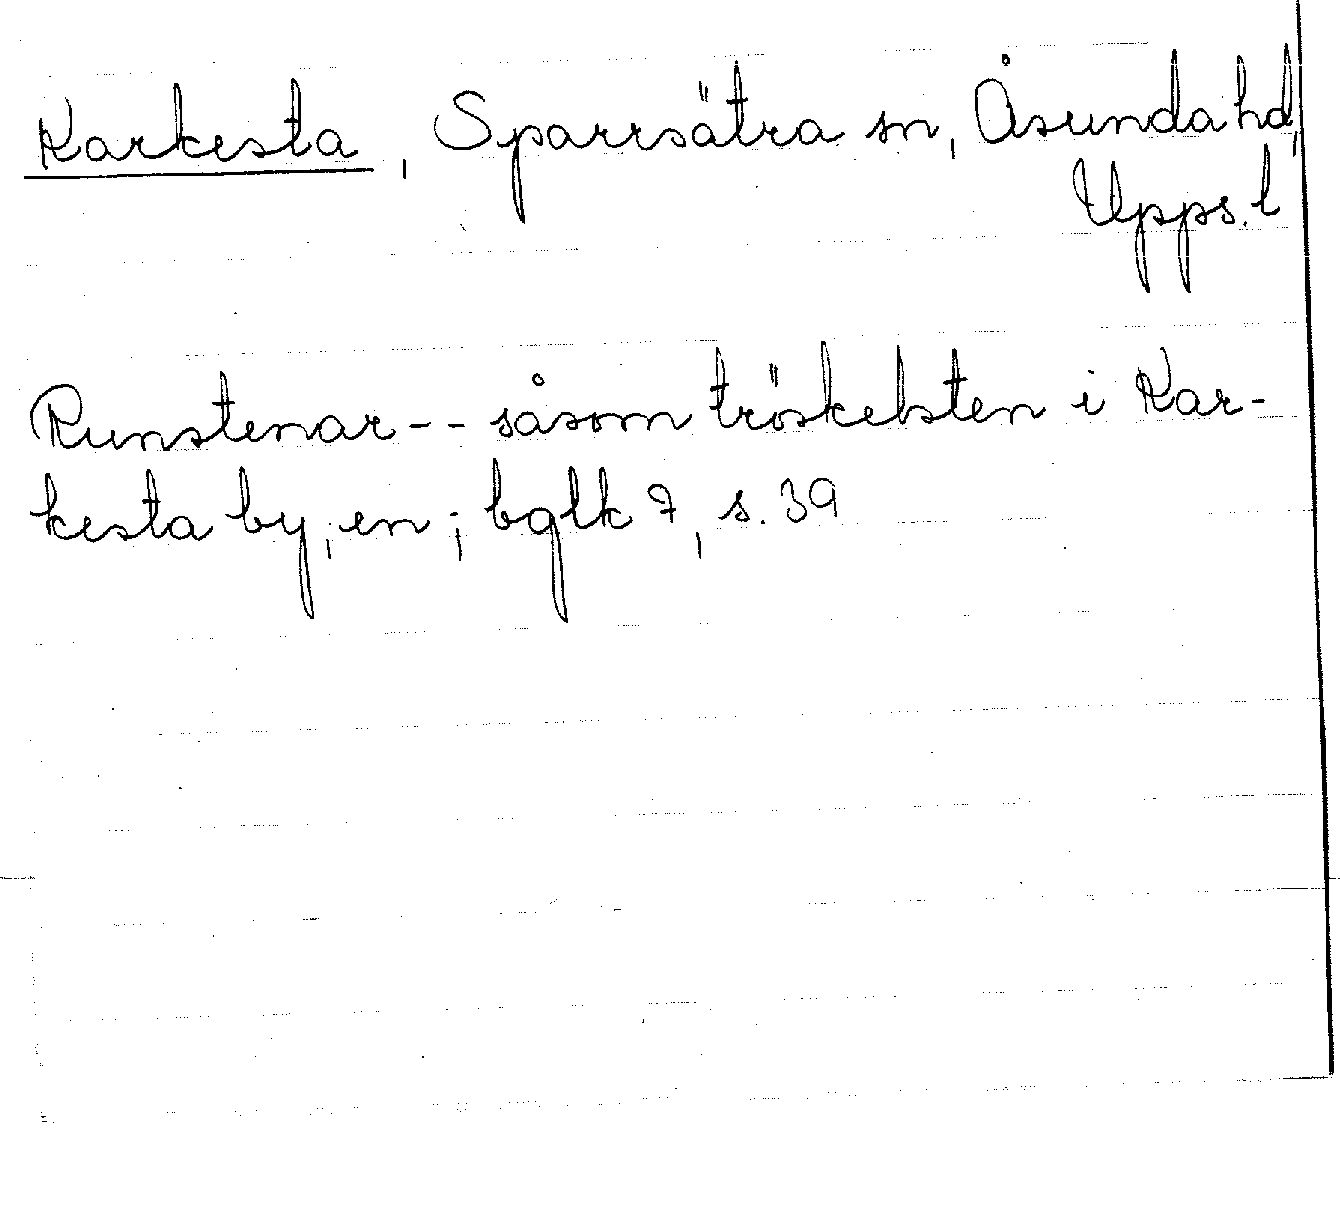 Karkesta, Sparrsätra sn, Åsunda hd,
Upps. l
Runstenar -- såsom tröskelsten i Kar-
kesta by, en; bglk 7, s. 39